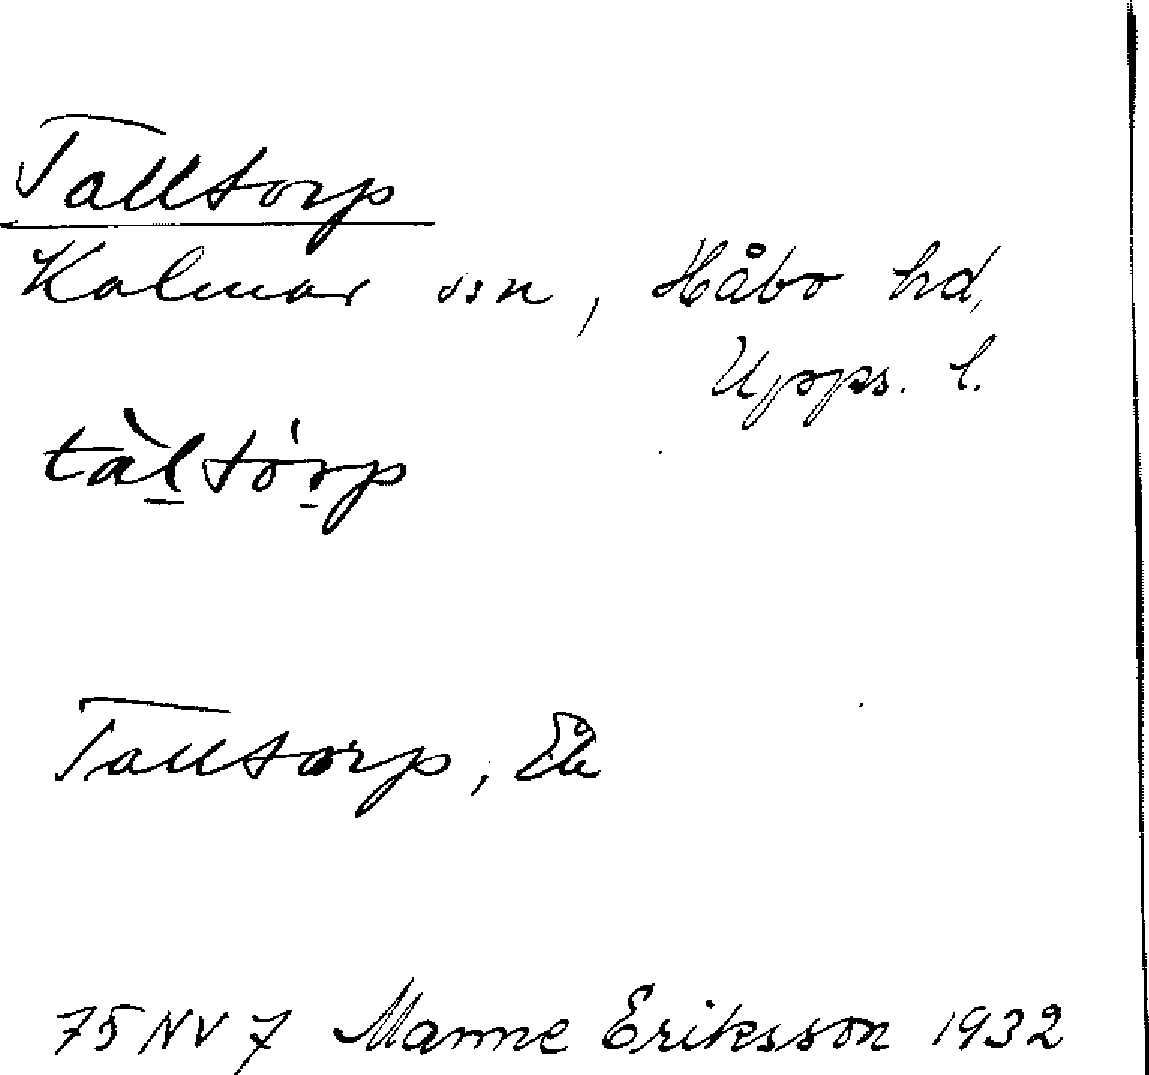 Talltorp
Kalmar sn, Håbo hd,
Upps. l.
tàltórp
Talltorp,
75 NV 7 Manne Eriksson 1932